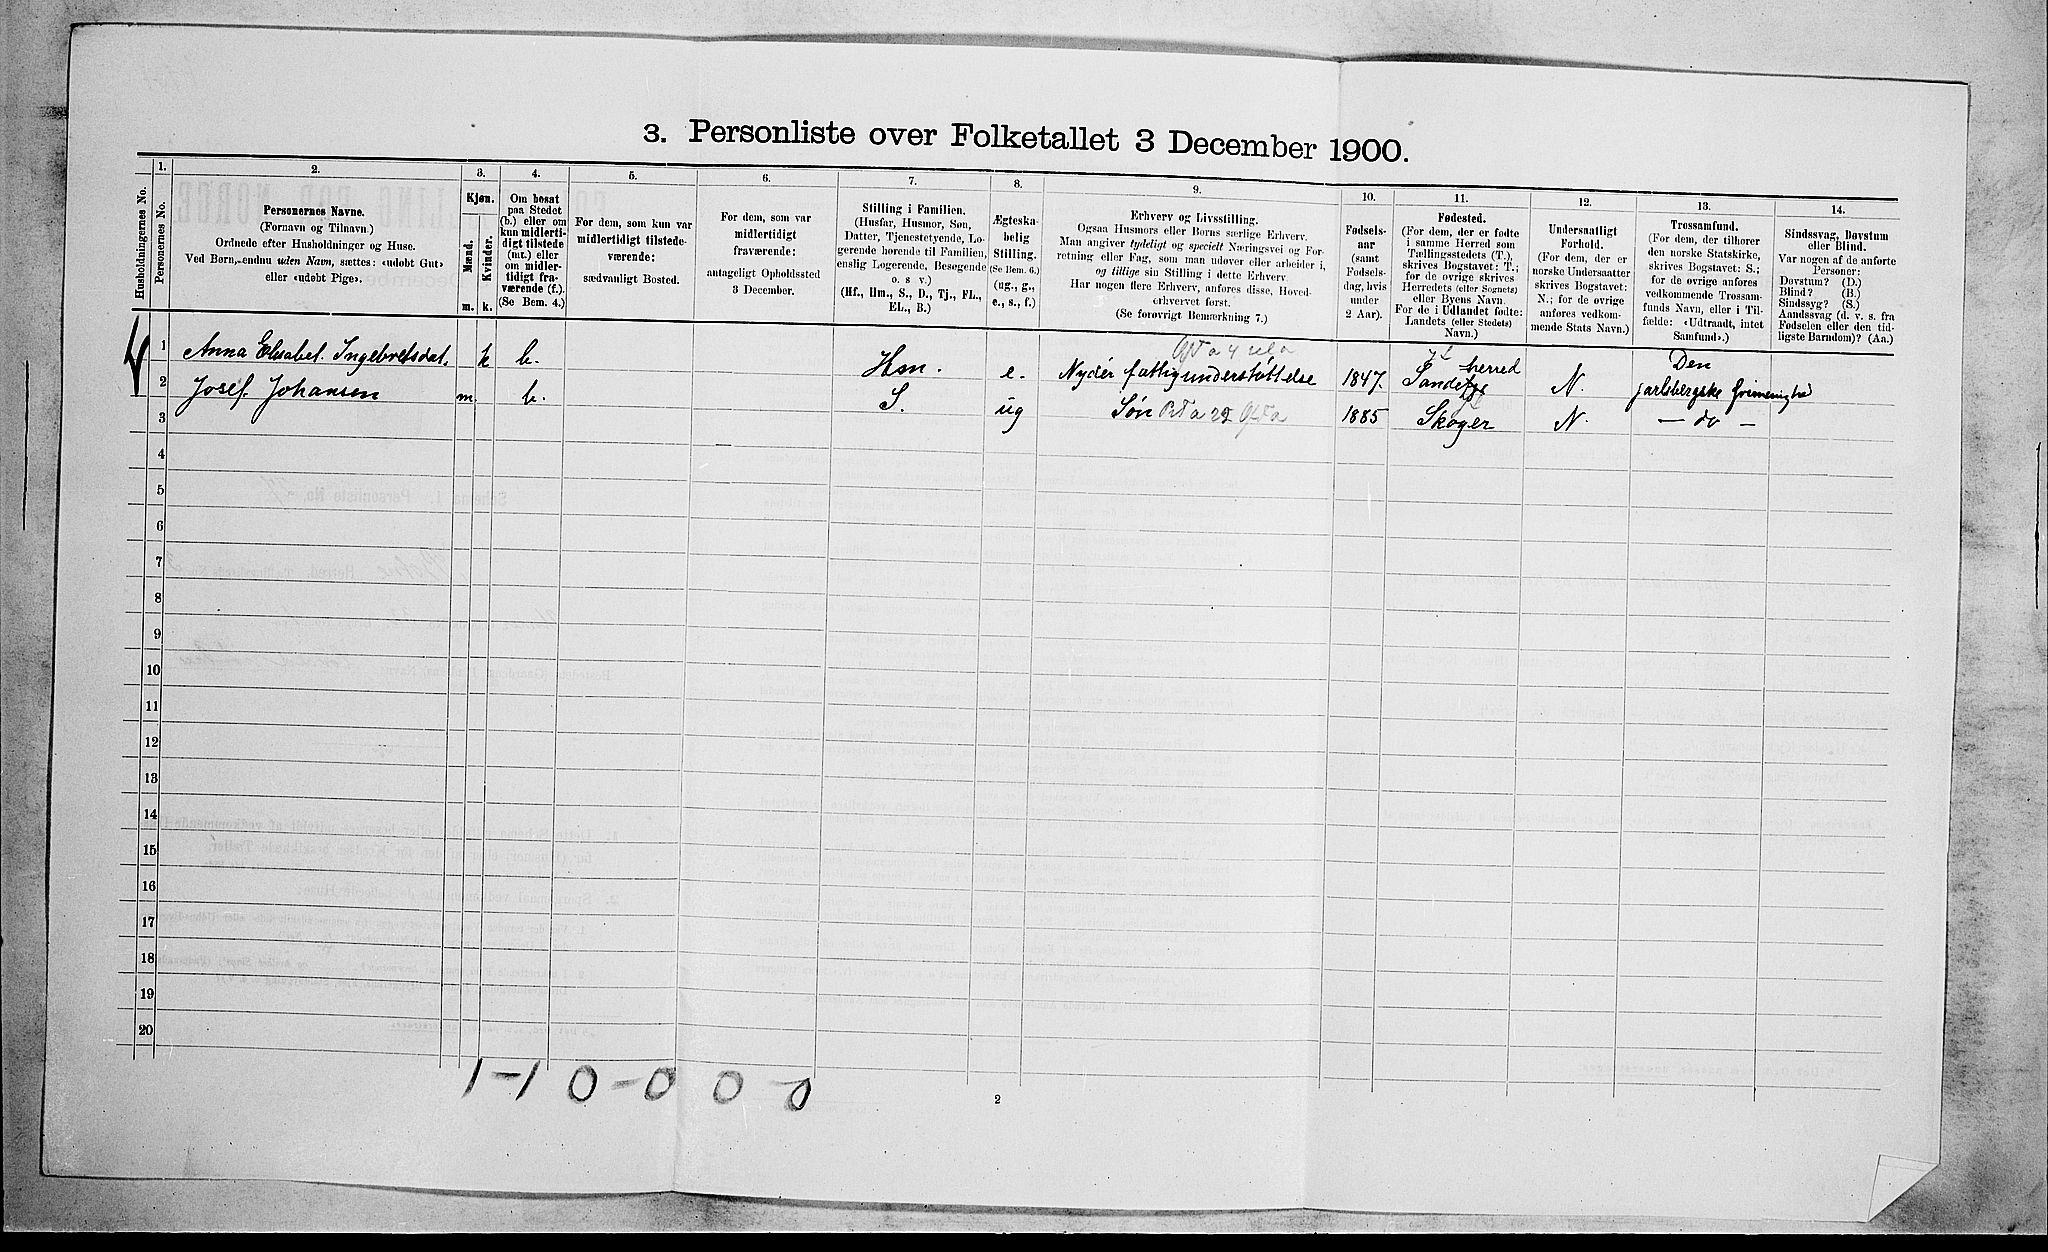 3. Personliste over Folketallet 3 December 1900.
Husholdningernes No.
1.
Personernes No.
2.
Personernes Navne.
(Fornavn og Tilnavn.)
Ordnede efter Husholdninger og Huse.
Ved Børn, endnu uden Navn, sættes: «udøbt Gut»
eller «udøbt Pige».
3.
Kjøn.
Mænd.
Kvinder.
m. k.
4.
Om bosat
paa Stedet
(b.) eller om
kun midlerti-
digt tilstede
(mt.) eller
om midler-
tidigt fra-
værende (f.).
(Se Bem. 4.)
5.
For dem, som kun var
midlertidigt tilstede-
værende:
sædvanligt Bosted.
6.
For dem, som var
midlertidigt
fraværende:
antageligt Opholdssted
3 December.
7.
Stilling i Familien.
(Husfar, Husmor, Søn,
Datter, Tjenestetyende, Lo-
gerende hørende til Familien,
enslig Logerende, Besøgende
o. s v.)
(Hf., Hm., S., D., Tj., FL.,
EL., B.)
8.
Ægteska-
belig
Stilling.
(Se Bem. 6.)
(ug., g.,
e., s., f.)
9.
Erhverv og Livsstilling.
Ogsaa Husmors eller Børns særlige Erhverv.
Man angiver tydeligt og specielt Næringsvei og For-
retning eller Fag, som man udøver eller arbeider i,
og tillige sin Stilling i dette Erhverv.
Har nogen flere Erhverv, anføres disse, Hoved-
erhvervet først.
(Se forøvrigt Bemærkning 7.)
10.
Fødsels-
aar
(samt
Fødsels-
dag, hvis
under
2 Aar).
11.
Fødested.
(For dem, der er fødte
i samme Herred som
Tællingsstedets (T.),
skrives Bogstavet: T.;
for de øvrige skrives
Herredets (eller Sognets)
eller Byens Navn.
For de i Udlandet fødte:
Landets (eller Stedets)
Navn.)
12.
Undersaatligt
Forhold.
(For dem, der er
norske Undersaatter
skrives Bogstavet:
N.; for de øvrige
anføres vedkom-
mende Stats Navn.)
13.
Trossamfund.
(For dem, der tilhører
den norske Statskirke,
skrives Bogstavet: S.;
for de øvrige anføres
vedkommende Trossam-
funds Navn, eller i Til-
fælde: «Udtraadt, intet
Samfund».)
14.
Sindssvag, Døvstum
eller Blind.
Var nogen af de anførte
Personer:
Døvstum? (D.)
Blind? (B.)
Sindssyg? (S.)
Aandssvag (d. v. s. fra
Fødselen eller den tid-
ligste Barndom)? (Aa.)
1 Anna Elisabet. Ingebretsdat. k b. Hm. e. Nyder fattigunderstøttelse 1847. Sandeherred N. Den jarlsbergske frimenighed
2 Josef. Johansen m. b. S. ug Søn 1885 Skoger N. — do —
3
4
5
6
7
8
9
10
11
12
13
14
15
16
17
18
19
20
1-1 0-0 0 0
2